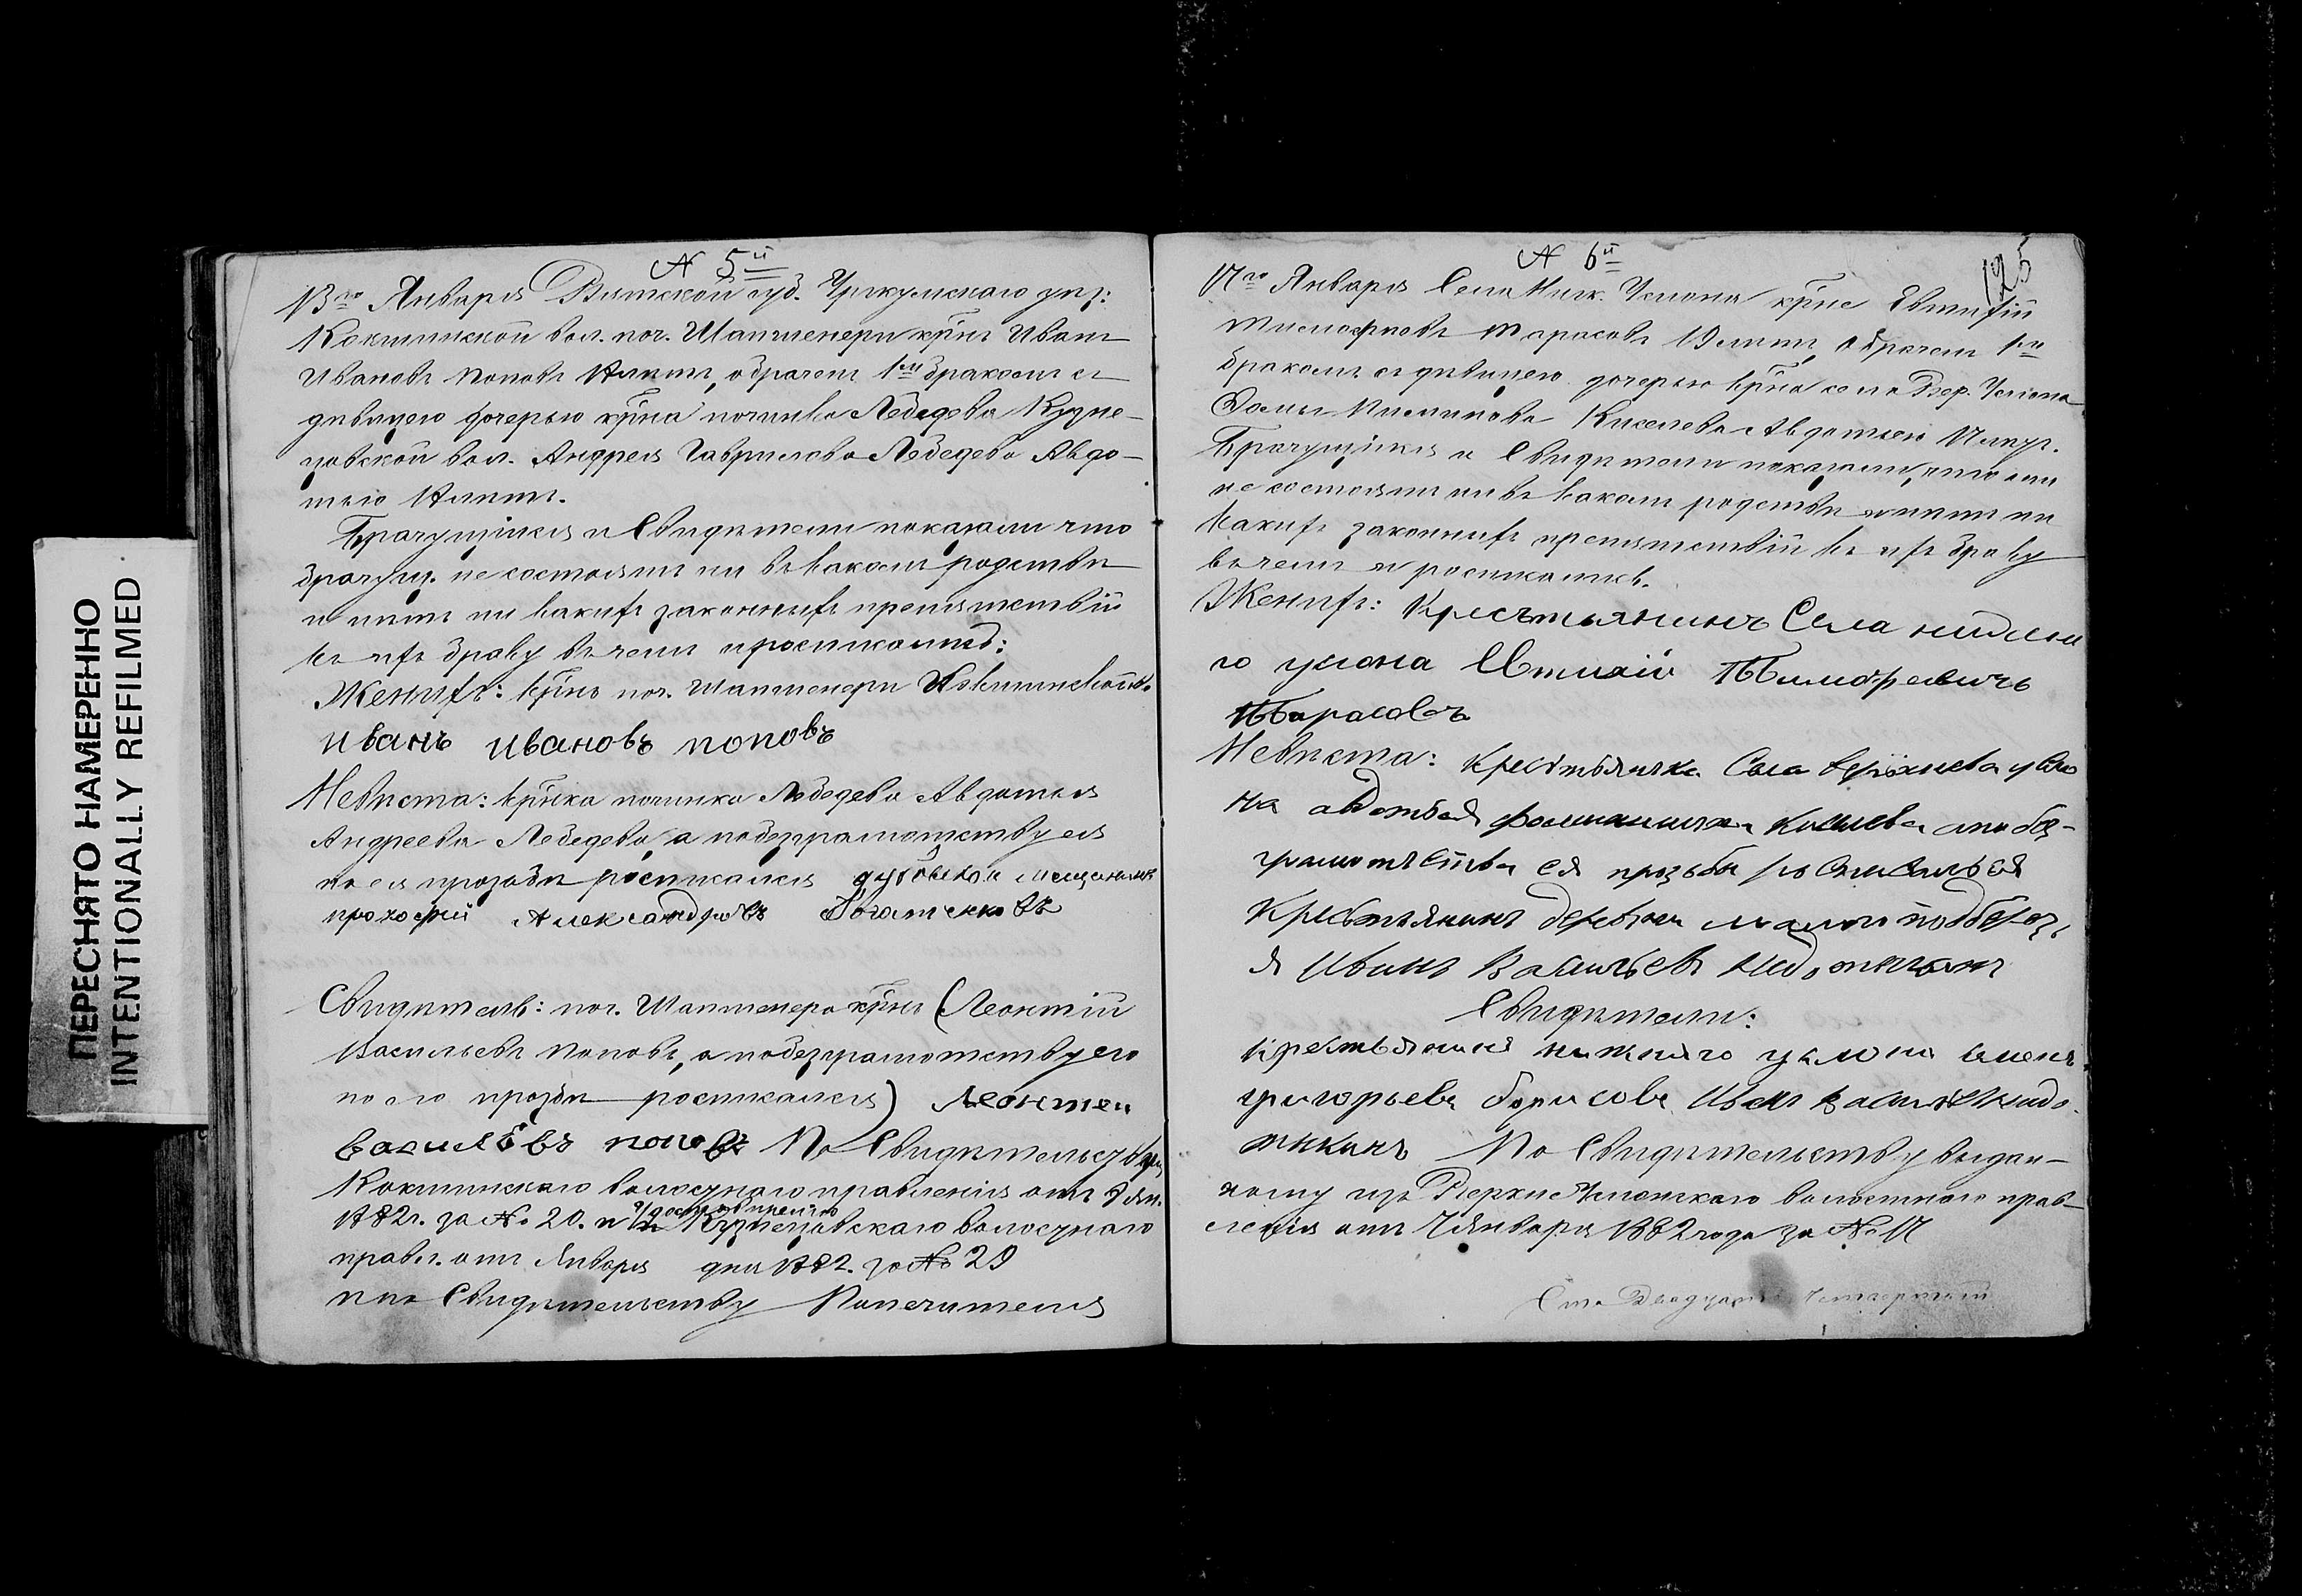 ПЕРЕСНЯТО НАМЕРЕННО
INTENTIONALLY REFILMED
№ 5й
13го Января Вятской губ. Уржумскаго уѣз:
Кокшинской вол. поч. Шаптенери крн͠ъ Иванъ
Ивановъ Поповъ лѣтъ, обрачен 1мъ бракомъ съ
дѣвицею дочерью крн͠а починка Лебедева Кузне-
цовской вол. Андрея Гаврилова Лебедева Авдо-
тью лѣтъ.
Брачущіися и Свидѣтели показали что
брачущ. не состоятъ ни въ какомъ родствѣ
и нѣтъ ни какихъ законныхъ препятствій
къ ихъ браку въ чемъ и росписались:
Женихъ: крн͠ъ поч. Шаптенери Кокшинской в.
иванъ ивановъ поповъ
Невѣста: крн͠ка починка Лебедева Авдотья
Андреева Лебедева, а по безграмотству ея
по ея прозьбѣ росписался мещанинъ
прохорий Александровъ Богатенковъ
Свидѣтель: поч. Шаптенера крн͠ъ (Леонтій
Васильевъ Поповъ, а по безграмотству его
по его прозьбѣ росписался) Леонтеи
василѣвъ поповъ По Свидѣтельству
Кокшинскаго волостнаго правленія отъ 9 Ян.
1882г. за № 20. и Кузнецовскаго волостнаго
правл. отъ Января дня 1882. за № 29
и по Свидѣтельству Попечителя
125
№ 6й
17го Января Села Ниж. Услона крн͠е Евтихій
Тимофеевъ Тарасовъ 19 лѣтъ, обрачен 1мъ
бракомъ съ дѣвицею дочерью крн͠а села Вер. Услона
Фомы Киселева Авдотьею
Брачущіися и Свидѣтели показали, что они
не состоятъ ни въ какомъ родствѣ и нѣтъ ни
какихъ законныхъ препятствій къ ихъ браку
въ чемъ и росписались.
Женихъ: Кресьтьянинъ Села нижне
го услона Евтихій Тимофеевичь
Тарасовъ
Невѣста: Крестьянка Села верхнева усло
на авдотья Киселева а по без-
грамотьства ея прозьбы росписалься
Крестьянинъ деревни малой подберез
я Иванъ Васильевъ
Свидѣтели:
крестьянина нижняго услона семенъ
григорьевъ борисовъ Иванъ
По Свидѣтельству выдан-
ному изъ Верхне Услонскаго волостного прав-
ленія отъ 7 Января 1882 года за № 17
Сто Двадцать Четвертый